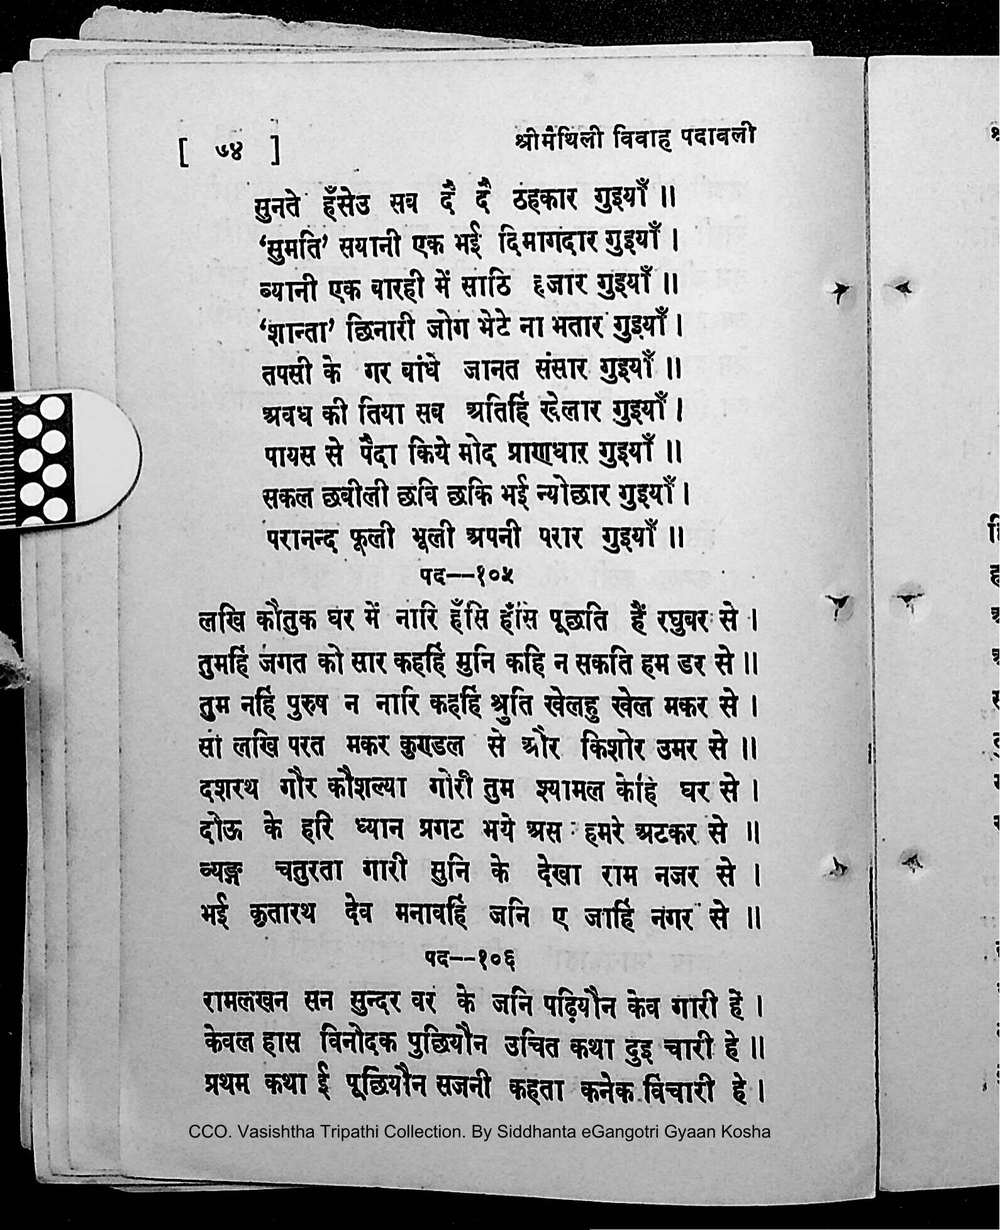 [ ७४ ]
श्रीमैथिली विवाह पदावली
सुनते हँसेउ सब दै दै ठहकार गुइयाँ ॥
‘सुमति’ सयानी एक भई दिमागदार गुइयाँ ।
ब्यानी एक बारही में साठि हजार गुइयाँ ॥
‘शान्ता’ छिनारी जोग भेटे ना भतार गुइयाँ ।
तपसी के गर बांधे जानत संसार गुइयाँ ॥
अवध की तिया सब अतिहिं खेलार गुइयाँ ।
पायस से पैदा किये मोद प्राणधार गुइयाँ ॥
सकल छबीली छवि छकि भई न्योछार गुइयाँ ।
परानन्द फूली भूली अपनी परार गुइयाँ ॥
पद--१०५
लखि कौतुक घर में नारि हँसि हँसि पूछति हैं रघुबर से ।
तुमहिं जगत को सार कहहिं मुनि कहि न सकति हम डर से ॥
तुम नहिं पुरुष न नारि कहहिं श्रुति खेलहु खेल मकर से ।
सो लखि परत मकर कुण्डल से और किशोर उमर से ॥
दशरथ गौर कौशल्या गोरी तुम श्यामल केहि घर से ।
दोऊ के हरि ध्यान प्रगट भये अस हमरे अटकर से ॥
व्यङ्ग चतुरता गारी सुनि के देखा राम नजर से ।
भई कृतारथ देव मनावहिं जनि ए जाहिं नगर से ॥
पद--१०६
रामलखन सन सुन्दर वर के जनि पढ़ियौन केव गारी हे ।
केवल हास विनोदक पुछियौन उचित कथा दुइ चारी हे ॥
प्रथम कथा ई पूछियौन सजनी कहता कनेक विचारी हे ।
CCO. Vasishtha Tripathi Collection. By Siddhanta eGangotri Gyaan Kosha